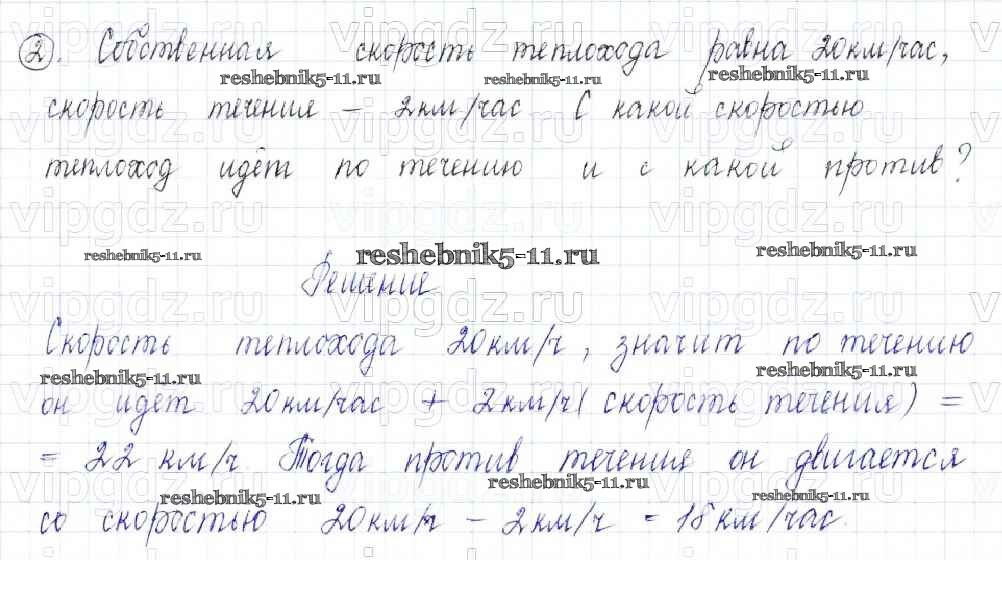 2). Собственная скорость теплохода равна 20км/час,
скорость течения – 2км/час С какой скоростью
теплоход идёт по течению и с какой против?
Решение
Скорость теплохода 20км/ч, значит по течению
он идет 20км/час + 2км/ч (скорость течения) =
= 22 км/ч. Тогда против течения он двигается
со скоростью 20км/ч – 2км/ч = 18км/час.
vipgdz.ru
reshebnik5-11.ru